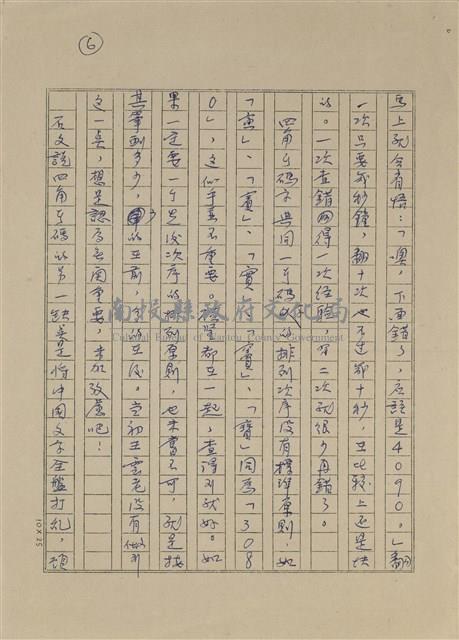 6
馬上就會有悟:「噢,下車錯了,應該是4090。」翻
一次只要幾秒鐘,翻十次也不過幾十秒,比較上還是快
的。一次查錯得一次經驗,有二次就很少再錯了。
四角號碼字典同一號碼的排列次序沒有標準原則,如
「賓」、「賽」、「寶」、同為「308
0」,這似乎不重要。儘量都在一起,查得到就好。如
果一定要一個是後次序的排列原則,也未嘗不可,就是按
其筆劃多少,少的在前,多的在後。當初王雲老沒有做到
這一矣,想是認為無關重要,未加改善吧!
后文說四角號碼的另一缺矣是將中國文字全盤打亂,項
南投縣政府文化局
Cultural Bureau of Nantou County Government
10×25